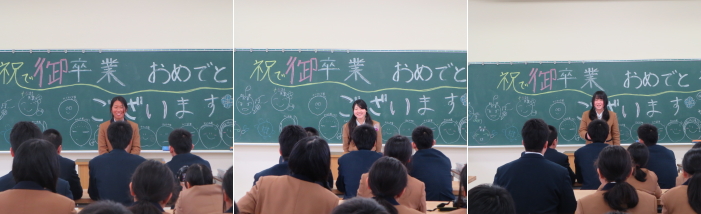 祝で御卒業 おめでと
ございます
祝で御卒業 おめでと
ございます
祝で御卒業 おめでと
ございます